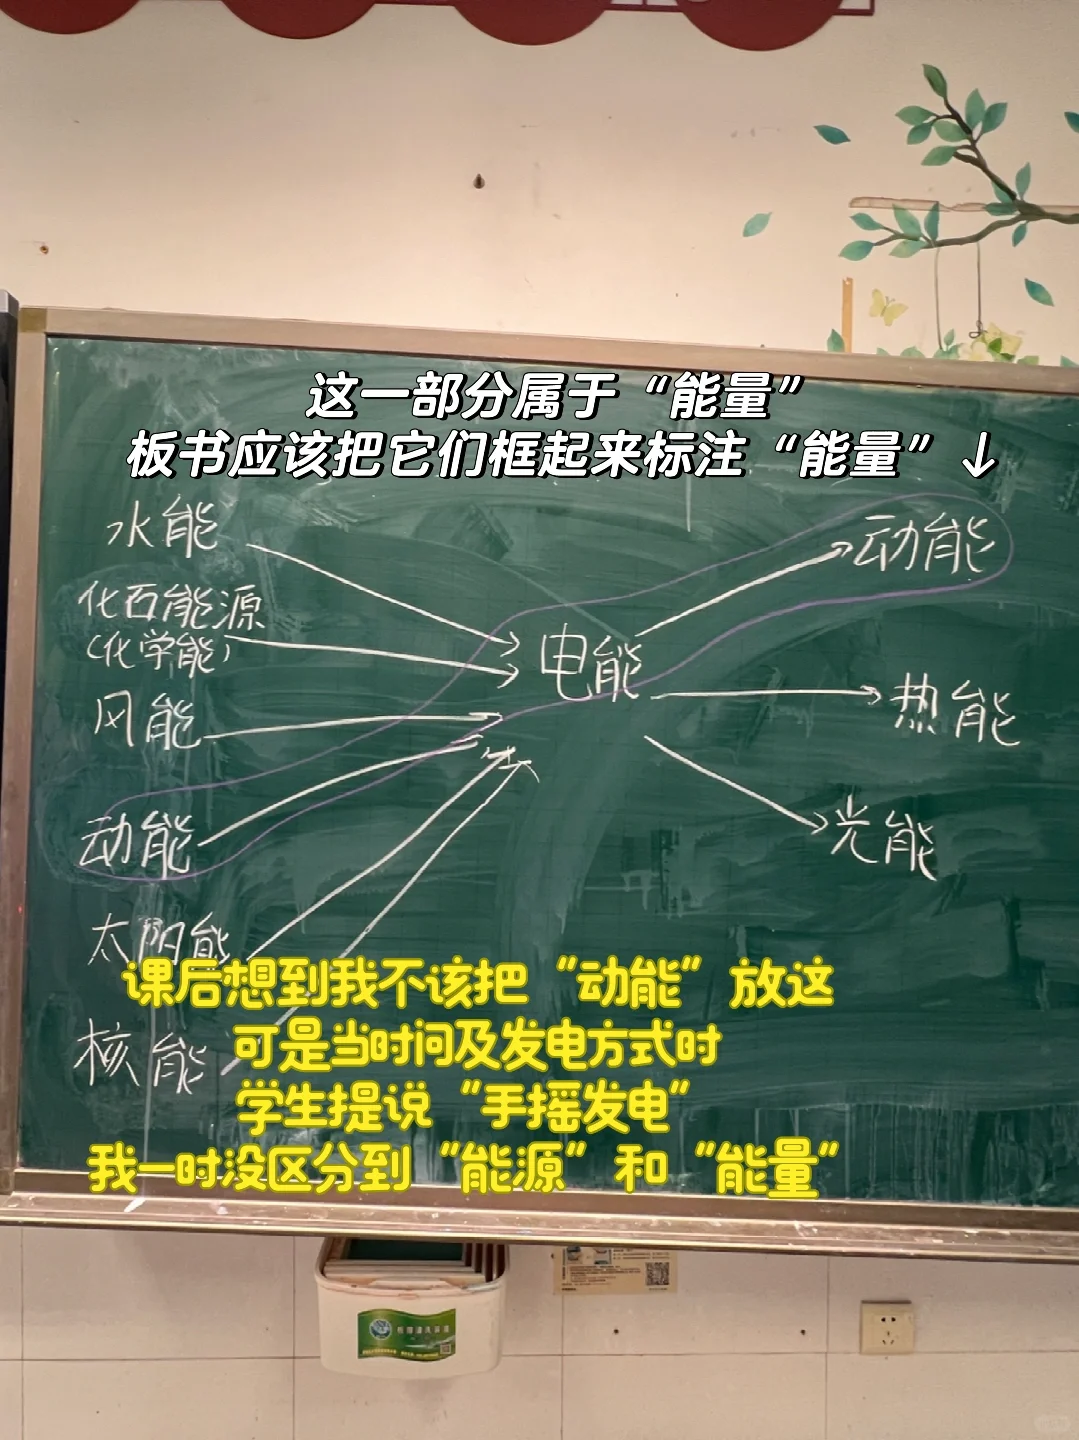 这一部分属于“能量”
板书应该把它们框起来标注“能量”↓
水能
化石能源
(化学能)
风能
动能
太阳能
核能
电能
动能
热能
光能
课后想到我不该把“动能”放这
可是当时问及发电方式时
学生提说“手摇发电”
我一时没区分到“能源”和“能量”